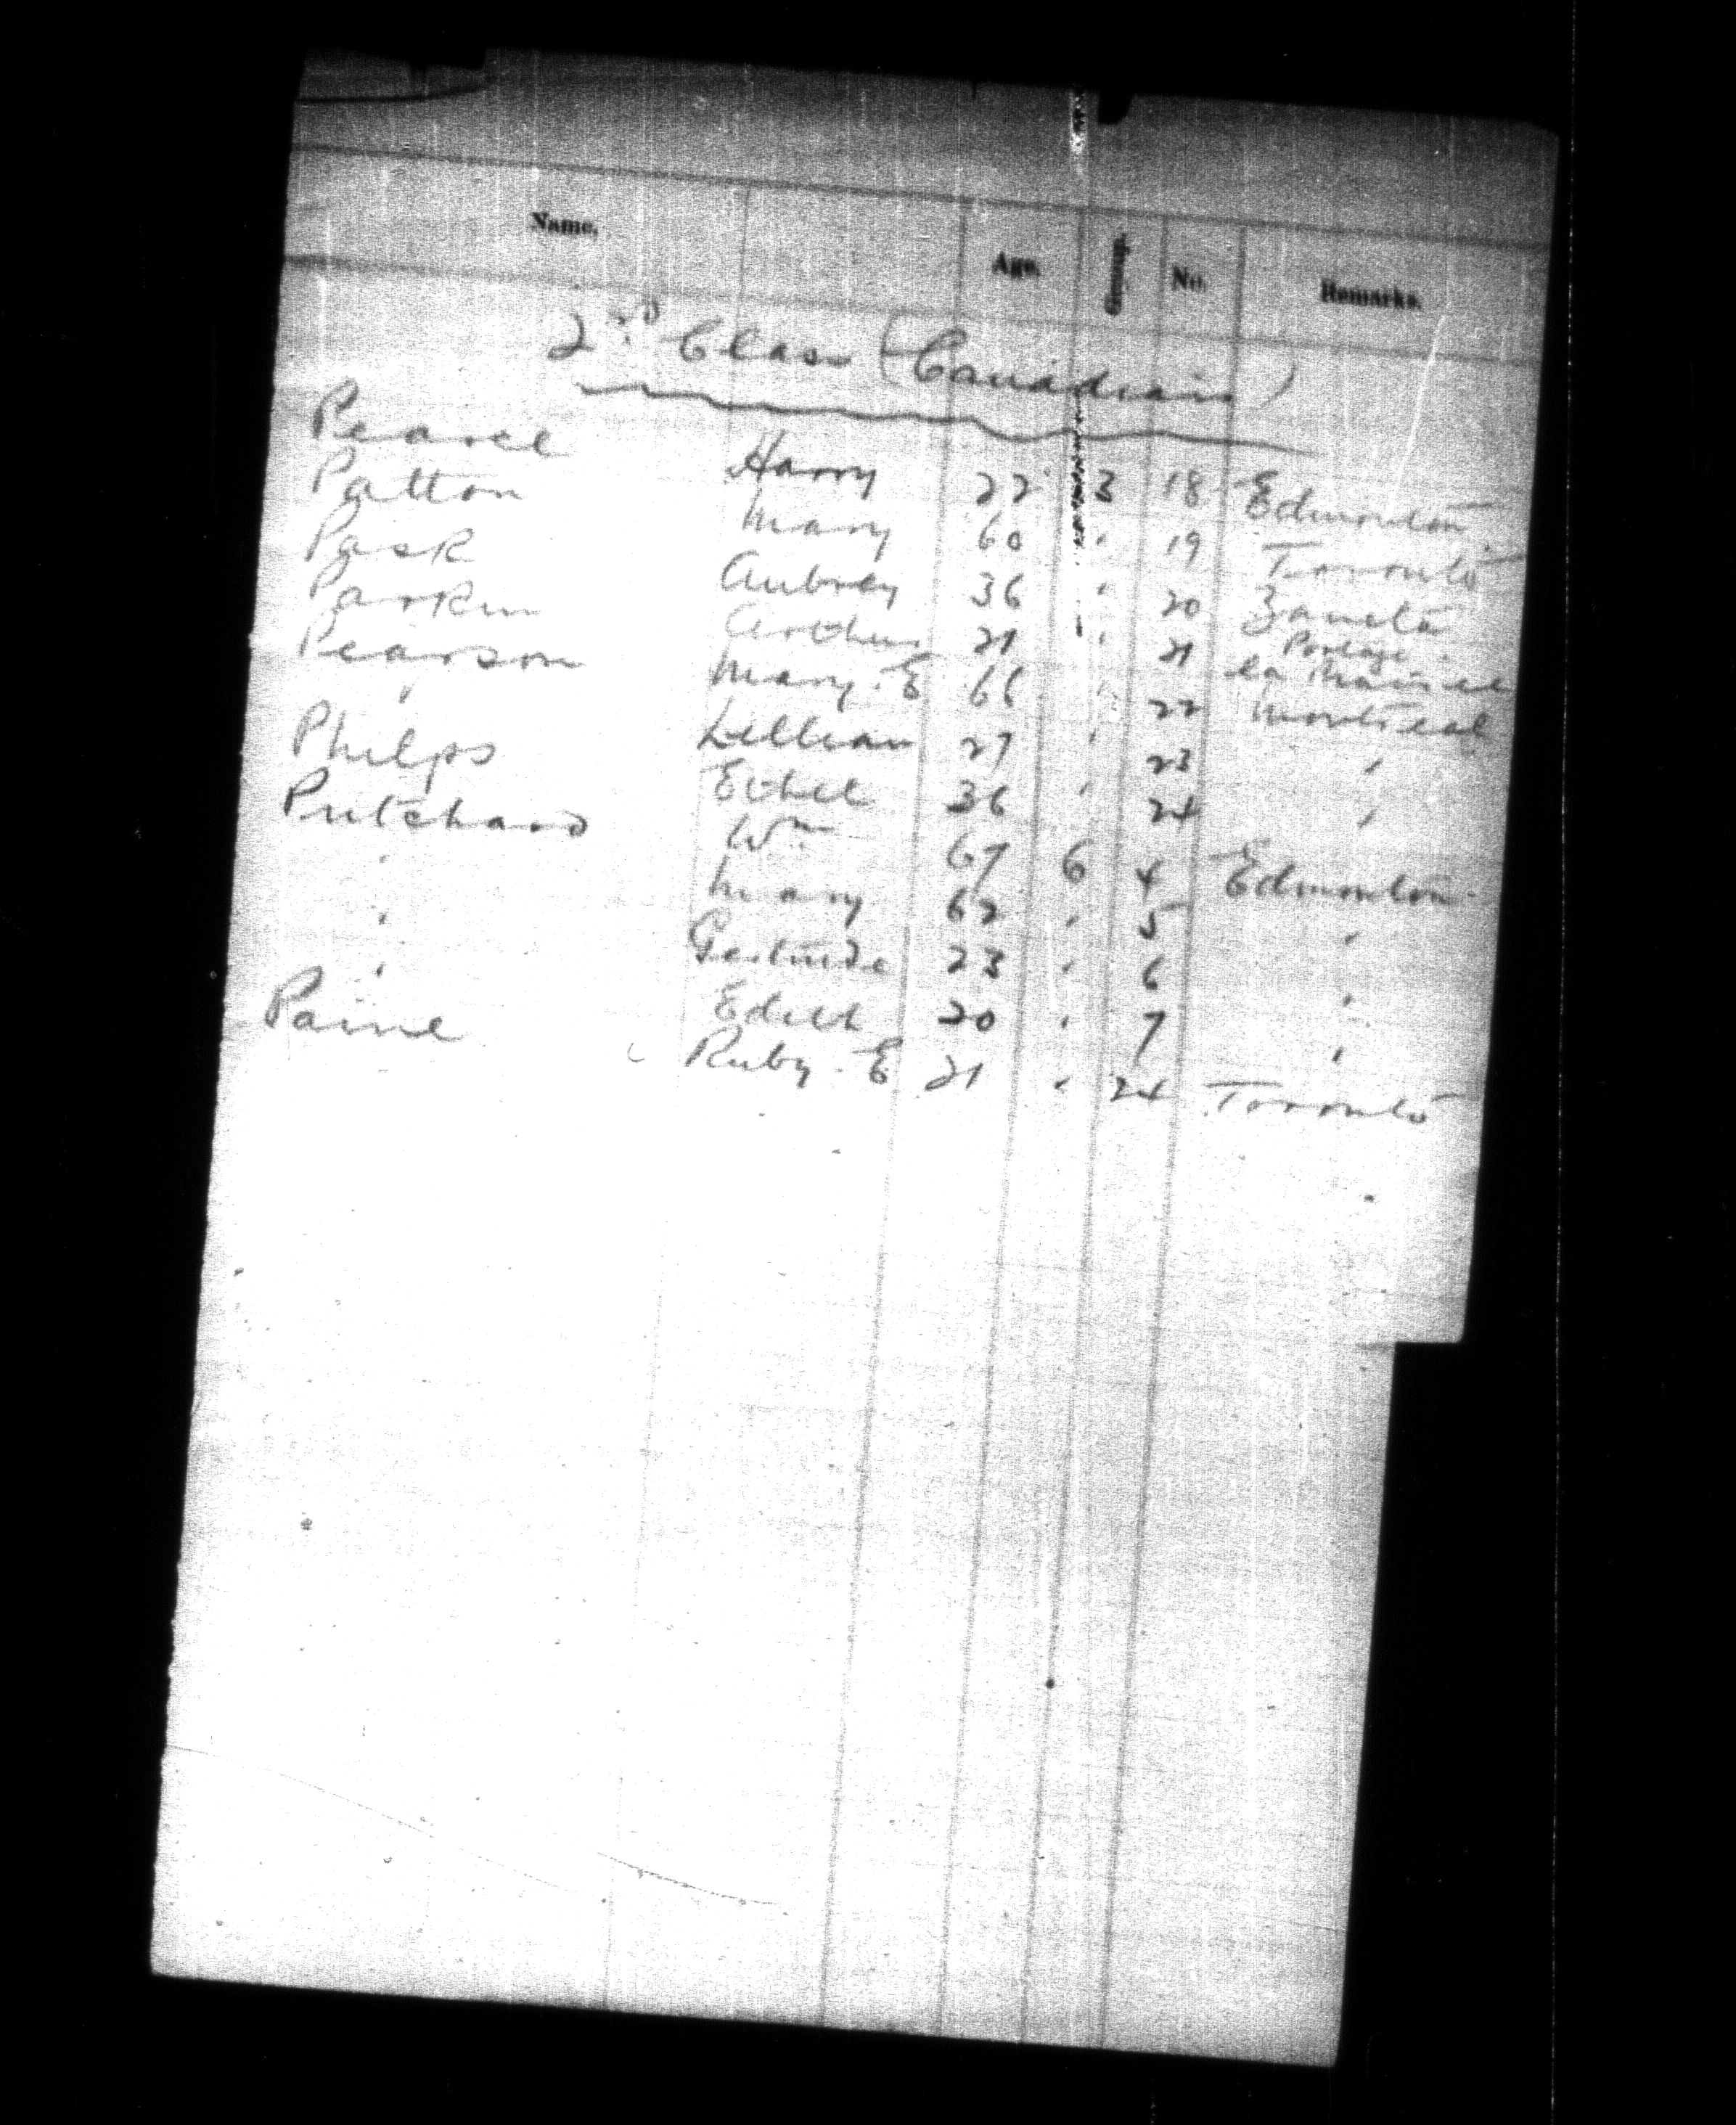 Name. Age. Group No. Remarks.
2nd Class (Canadian)
Pearce Harry 22 3 18 Edmonton
Patton Mary 60 " 19 Toronto
Pask Aubrey 36 " 20
Parkin Arthur 21 " 21 Portage la Prairie
Pearson Mary. E 66 " 22 Montreal
" Lillian 27 " 23 "
Phelps Ethel 36 " 24 "
Pritchard Wm 67 6 4 Edmonton
" Mary 62 " 5 "
" Gertrude 23 " 6 "
" Edith 20 " 7 "
Paine Ruby. E 21 " 24 Toronto